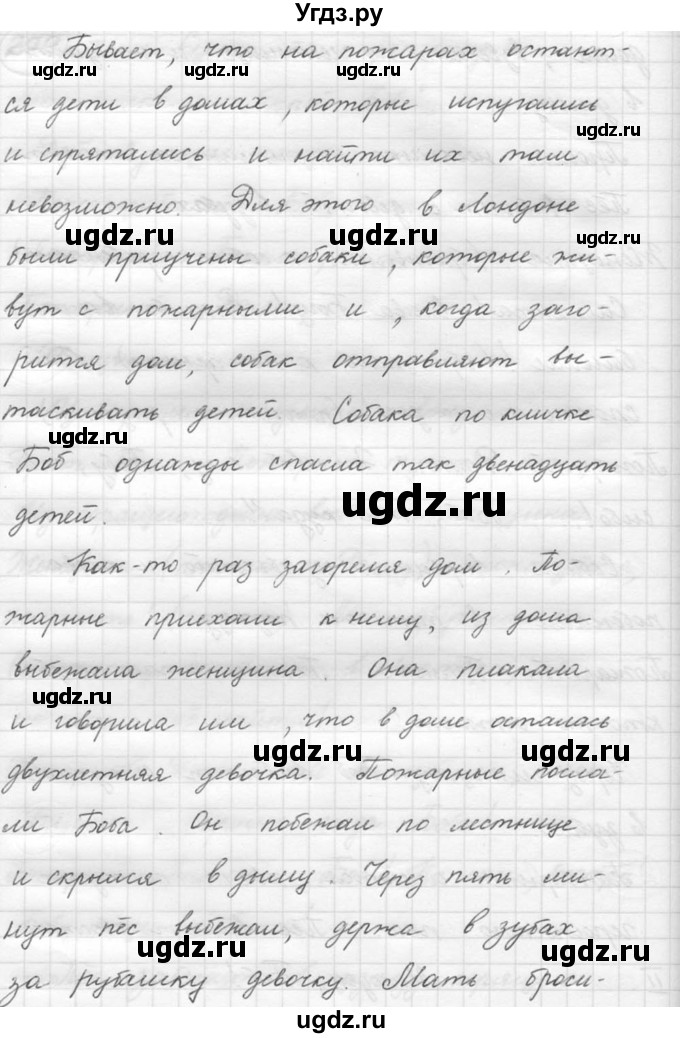 Угдз.ру
Бывает, что на пожарах остают-
ugdz.ru ugdz.ru ugdz.ru
ся дети в домах, которые испугались
ugdz.ru
и спрятались и найти их там
невозможно. Для этого в Лондоне
ugdz.ru ugdz.ru ugdz.ru
были приучены собаки, которые жи-
вут с пожарными и, когда заго-
рится дом, собак отправляют вы-
таскивать детей. Собака по кличке
ugdz.ru
Боб однажды спасла так двенадцать
ugdz.ru
детей.
Как-то раз загорелся дом. По-
жарные приехали к нему, из дома
выбежала женщина. Она плакала
ugdz.ru
и говорила им, что в доме осталась
ugdz.ru ugdz.ru
двухлетняя девочка. Пожарные посла-
ли Боба. Он побежал по лестнице
и скрылся в дыму. Через пять ми-
нут пёс выбежал, держа в зубах
ugdz.ru ugdz.ru
за рубашку девочку. Мать броси-
ugdz.ru